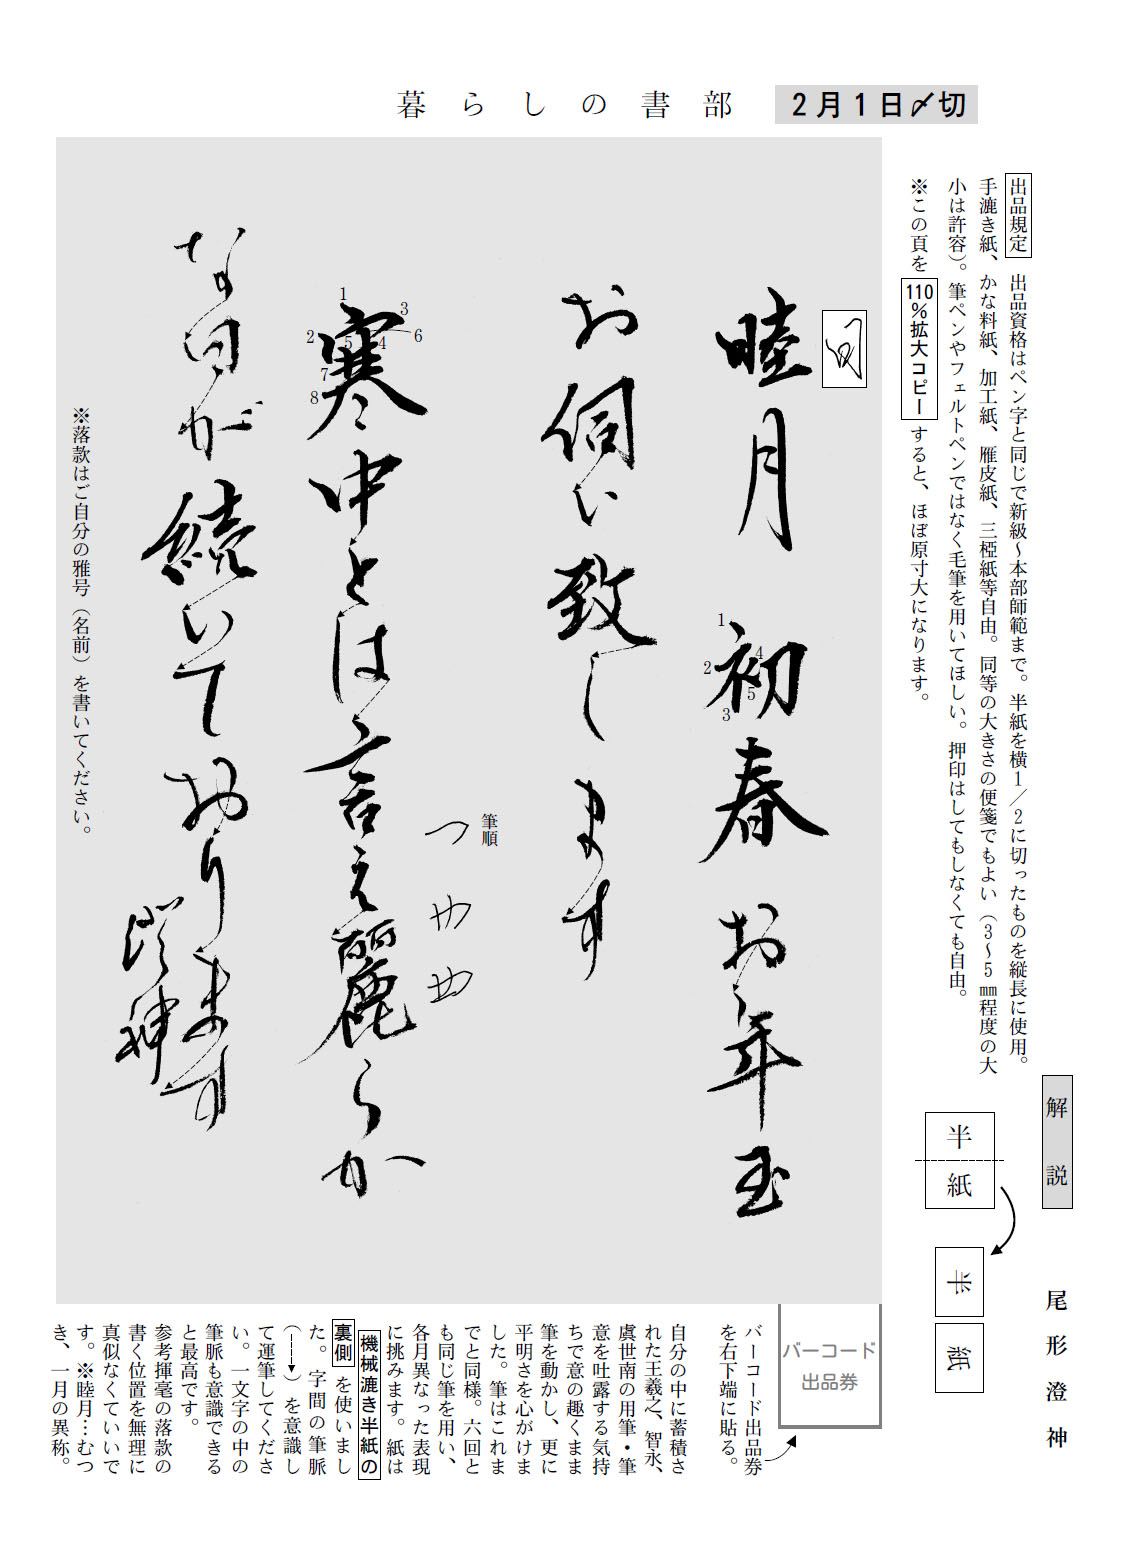 暮らしの書部
2月1日〆切
出品規定 出品資格はペン字と同じで新級〜本部師範まで。半紙を横1／2に切ったものを縦長に使用。
手漉き紙、かな料紙、加工紙、雁皮紙、三椏紙等自由。同等の大きさの便箋でもよい（3〜5㎜程度の大
小は許容）。筆ペンやフェルトペンではなく毛筆を用いてほしい。押印はしてもしなくても自由。
※この頁を110％拡大コピーすると、ほぼ原寸大になります。
睦月 初春お年玉
お伺い致します
寒中とは言え麗らか
な日が続いております
澄神
1
2
3
4
5
6
7
8
1
2
3
4
5
筆順
※落款はご自分の雅号（名前）を書いてください。
解説
尾形澄神
半紙
半
紙
バーコード
出品券
バーコード出品券
を右下端に貼る。
自分の中に蓄積さ
れた王羲之、智永、
虞世南の用筆・筆
意を吐露する気持
ちで意の趣くまま
筆を動かし、更に
平明さを心がけま
した。筆はこれま
でと同様。六回と
も同じ筆を用い、
各月異なった表現
に挑みます。紙は
機械漉き半紙の
裏側を使いまし
た。字間の筆脈
（）を意識し
て運筆してくださ
い。一文字の中の
筆脈も意識できる
と最高です。
参考揮毫の落款の
書く位置を無理に
真似なくていいで
す。※睦月…むつ
き、一月の異称。